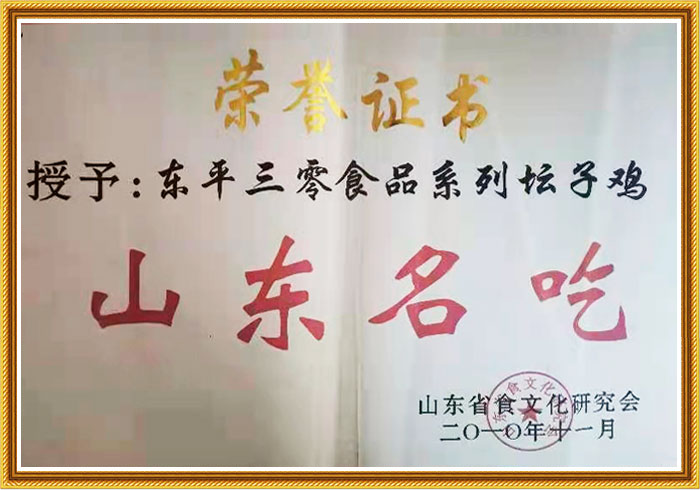 荣誉证书
授予:东平三零食品系列坛子鸡
山东名吃
山东省食文化研究会
二〇一〇年十一月